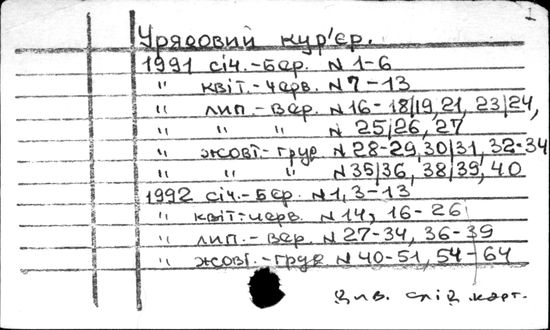 1
Урядовий кур'єр.
1991 січ.-бер. N 1-6
" квіт.-черв. N 7-13
" лип.-вер. N 16-18/19, 21, 23/24,
" " " N 25/26, 27
" жовт.-груд N 28-29, 30/31, 32-34
" " " N 35/36, 38/39, 40
1992 січ.-бер. N 1, 3-13
" квіт-черв. N 14, 16-26
" лип.-вер. N 27-34, 36-39
" жовт.-груд N 40-51, 54-64
Див. слід карт.